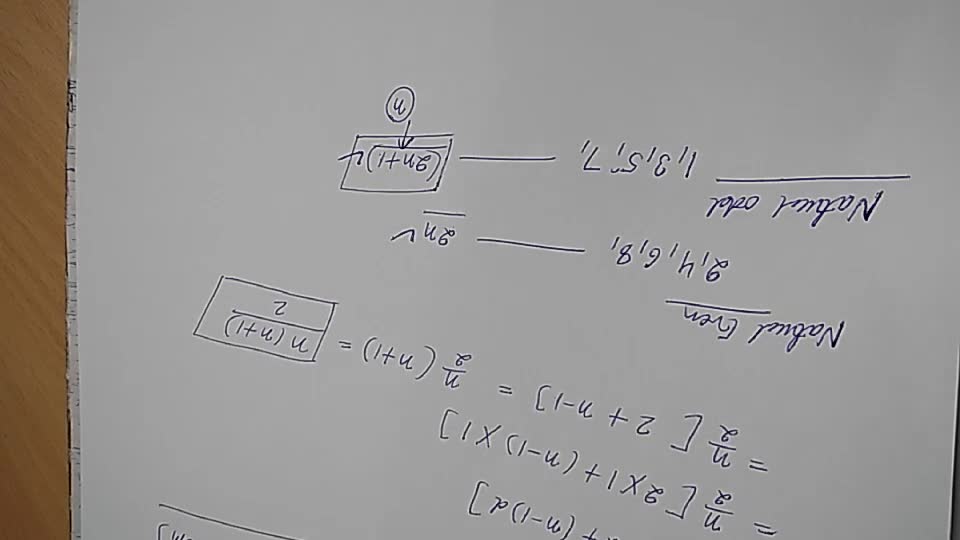 + (n-1)d]
= n/2 [2×1 + (n-1)×1]
= n/2 [2 + n-1] = n/2 (n+1) = n(n+1)/2
Natural Even
2, 4, 6, 8, —— 2n ✓
Natural odd
1, 3, 5, 7, —— (2n+1)
n